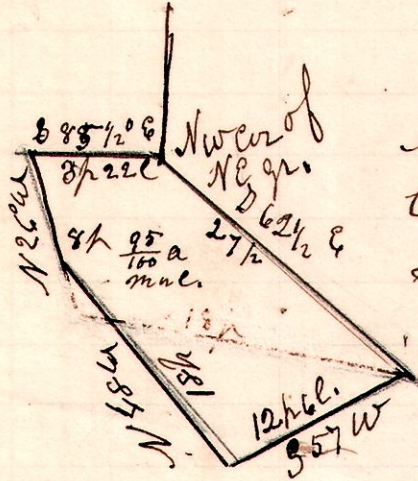 S 85 1/2° E
3p 22 l
NW cor of
NE qr.
S 62 1/2 E
27 1/2
N 26 W
8p
95/100 a
N 48 W
18p
18p
12p 6l.
S 57 W